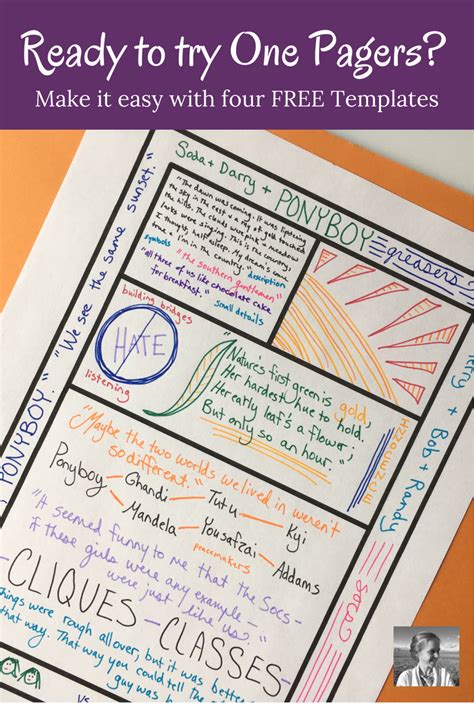 Ready to try One Pagers?
Make it easy with four FREE Templates
Soda + Darry + PONYBOY
greasers
"The dawn was coming. It was lightening
the sky in the east + a ray of gold touched
the hills. The clouds were pink + meadow
larks were singing. This is the country,
I thought, half asleep. My dream's come
true + I'm in the country."
symbols
description
"the southern gentlemen"
"all three of us like chocolate cake
for breakfast."
small details
building bridges
HATE
listening
Nature's first green is gold,
Her hardest hue to hold.
Her early leaf's a flower;
But only so an hour."
PONYBOY. "We see the same sunset."
+ Bob + Randy
socs
"Maybe the two worlds we lived in weren't
so different."
Ponyboy Ghandi Tutu Kyi
Mandela Yousafzai Addams
peacemakers
"It seemed funny to me that the Socs-
if these girls were any example-
were just like us."
CLIQUES - CLASSES
things were rough all over, but it was better
that way. That way you could tell the
guy was
VS